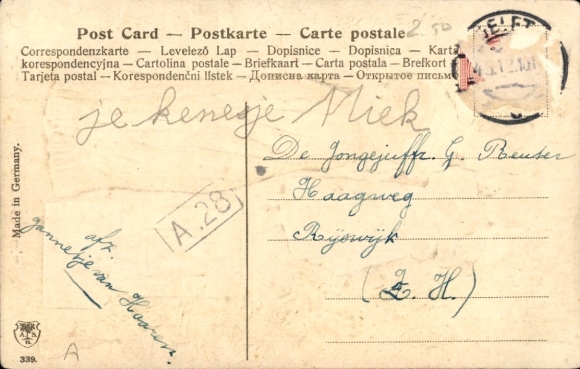 Post Card — Postkarte — Carte postale
2.50
Correspondenzkarte — Levelező Lap — Dopisnice — Dopisnica — Karta
korespondencyjna — Cartolina postale — Briefkaart — Carta postala — Brefkort
Tarjeta postal — Korespondenčni listek — Дописна карта — Открытое письмо
DELFT
je
Miek
De Jongejuffr. G. Reuser
Haagweg
Rijswijk
(Z. H.)
A.28
afz.
Jannetje van Haaren.
Made in Germany.
339.
A